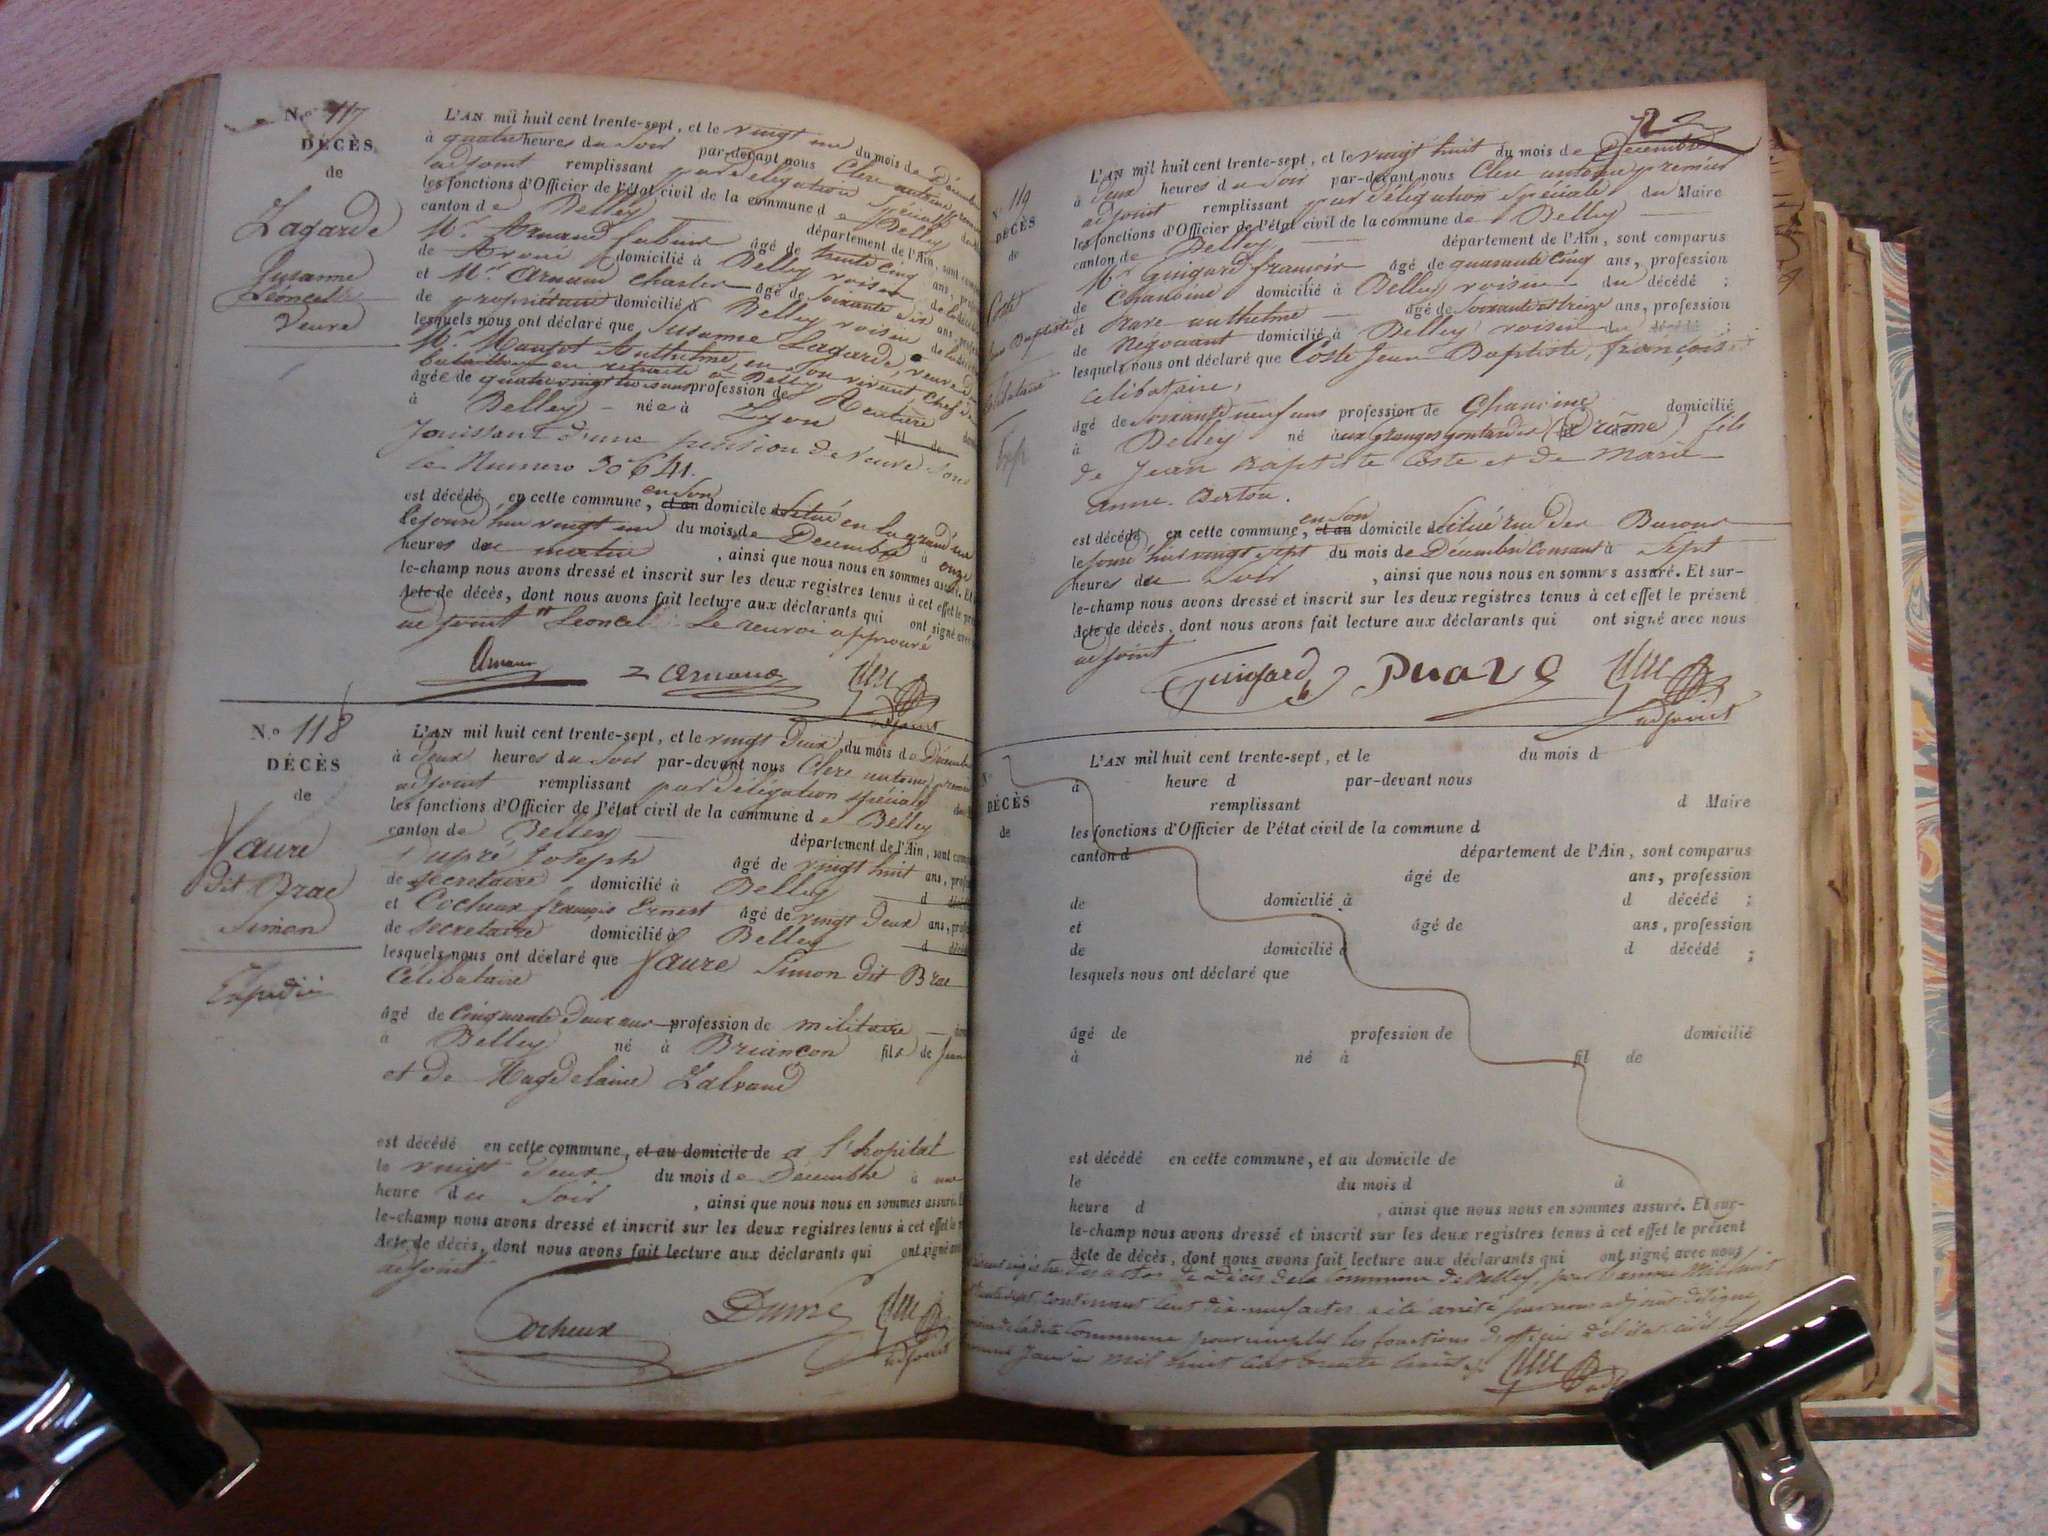 N.o 117
DÉCÈS
de
Lagarde
Susanne
Léoncel
Veuve
L'AN mil huit cent trente-sept, et le vingt un du mois de Décembre
à quatre heures du Soir par-devant nous Clerc antoine premier
adjoint remplissant par délégation spéciale du
les fonctions d'Officier de l'état civil de la commune de Belley
canton de Belley département de l'Ain, sont
Mr. Arnaud âgé de trente cinq ans,
de domicilié à Belley voisin de la
et Mr. Arnaud Charles âgé de Soixante dix ans,
de propriétaire domicilié à Belley voisin de la
lesquels nous ont déclaré que Susanne Lagarde, veuve de
Mr. Anthelme, en son vivant chef de
bataillon en retraite à Belley
âgée de quatre vingt trois ans profession de Rentière
à Belley née à Lyon fil de
Jouissant d'une pension de veuve sous
le Numero 30641.
est décédé en cette commune, et au en son domicile situé en la grand rue
le jourd'hui vingt un du mois de Décembre à onze
heures du matin, ainsi que nous nous en sommes assuré. Et
le-champ nous avons dressé et inscrit sur les deux registres tenus à cet effet le
Acte de décès, dont nous avons fait lecture aux déclarants qui ont signé avec
adjoint Léoncel Le renvoi approuvé
Arnaud Arnaud
adjoint
N.o 118
DÉCÈS
de
faure
dit Brac
Simon
Expédié
L'AN mil huit cent trente-sept, et le vingt deux du mois de Décembre
à deux heures du Soir par-devant nous Clerc antoine premier
adjoint remplissant par délégation spéciale du
les fonctions d'Officier de l'état civil de la commune de Belley
canton de Belley département de l'Ain, sont
Dupré Joseph âgé de vingt huit ans,
de secretaire domicilié à Belley d
et Cocheux françois Ernest âgé de vingt deux ans,
de secretaire domicilié à Belley d
lesquels nous ont déclaré que faure Simon dit Brac
Célibataire
âgé de Cinquante deux ans profession de militaire
à Belley né à Briançon fils de Jean
et de Magdelaine
est décédé en cette commune, et au domicile de à l'hopital
le vingt deux du mois de Décembre à une
heure du Soir, ainsi que nous nous en sommes assuré.
le-champ nous avons dressé et inscrit sur les deux registres tenus à cet effet le
Acte de décès, dont nous avons fait lecture aux déclarants qui ont signé
adjoint
Cocheux Dupré
adjoint
119
DÉCÈS
de
Coste
Jean Baptiste
Célibataire
L'AN mil huit cent trente-sept, et le vingt huit du mois de Décembre
à deux heures du Soir par-devant nous Clerc antoine premier
adjoint remplissant par délégation spéciale du Maire
les fonctions d'Officier de l'état civil de la commune de Belley
canton de Belley département de l'Ain, sont comparus
Mr. Guigard françois âgé de quarante cinq ans, profession
de Chanoine domicilié à Belley voisin du décédé ;
et anthelme âgé de soixante et treize ans, profession
de Négociant domicilié à Belley voisin du décédé ;
lesquels nous ont déclaré que Coste Jean Baptiste, françois
Célibataire,
âgé de soixante neuf ans profession de Chanoine domicilié
à Belley né aux granges gontardes (Drôme) fils
de Jean Baptiste Coste et de Marie
anne Berton.
est décédé en cette commune, et au en son domicile situé rue des Barons
le jourd'hui vingt sept du mois de Décembre Courant à Sept
heures du Soir, ainsi que nous nous en sommes assuré. Et sur-
le-champ nous avons dressé et inscrit sur les deux registres tenus à cet effet le présent
Acte de décès, dont nous avons fait lecture aux déclarants qui ont signé avec nous
adjoint
Guigard
adjoint
DÉCÈS
de
L'AN mil huit cent trente-sept, et le du mois d
à heure d par-devant nous
remplissant d Maire
les fonctions d'Officier de l'état civil de la commune d
canton d département de l'Ain, sont comparus
âgé de ans, profession
de domicilié à d décédé ;
et âgé de ans, profession
de domicilié à d décédé ;
lesquels nous ont déclaré que
âgé de profession de domicilié
à né à fil de
est décédé en cette commune, et au domicile de
le du mois d à
heure d , ainsi que nous nous en sommes assuré. Et sur-
le-champ nous avons dressé et inscrit sur les deux registres tenus à cet effet le présent
Acte de décès, dont nous avons fait lecture aux déclarants qui ont signé avec nous
des actes de Décès de la Commune de Belley, pour l'année Mil huit
contenant Cent dix-neuf actes a été arrêté par nous adjoint délégué
de ladite Commune pour remplir les fonctions d'officier d'état civil
Janvier Mil huit cent trente huit